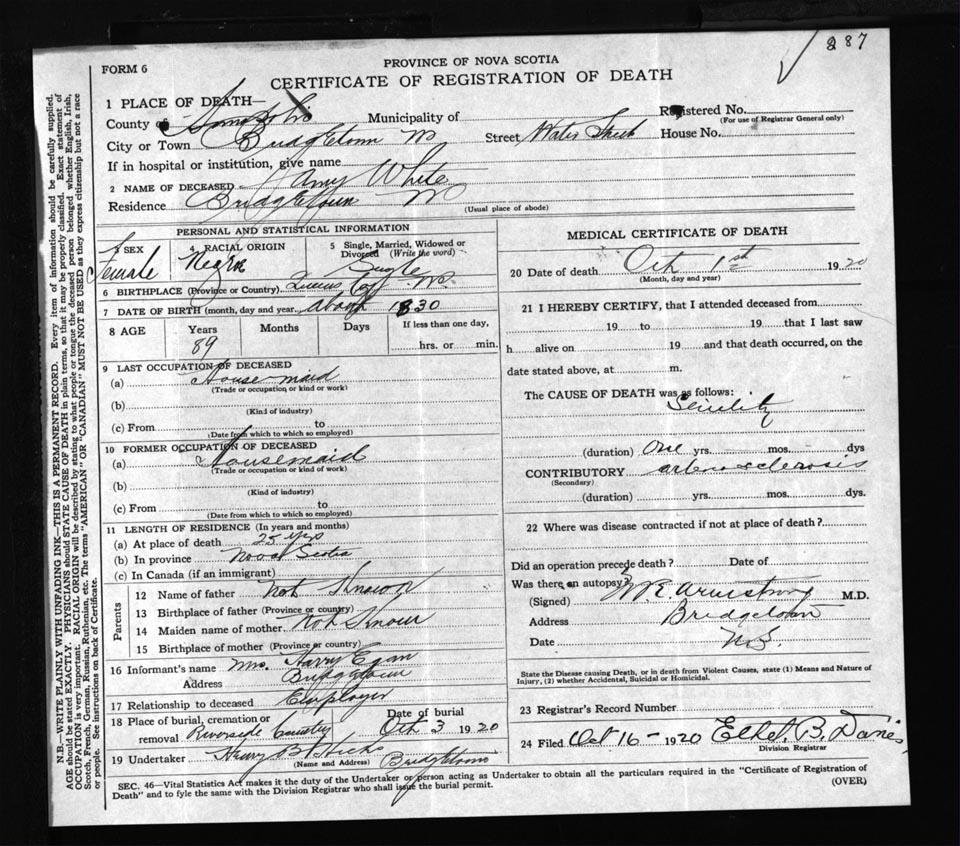 287
PROVINCE OF NOVA SCOTIA
FORM 6
CERTIFICATE OF REGISTRATION OF DEATH
1 PLACE OF DEATH—
County of Municipality of Registered No.
(For use of Registrar General only)
City or Town Bridgetown NS Street Water Street House No.
If in hospital or institution, give name
2 NAME OF DECEASED Amy White
Residence Bridgetown NS
(Usual place of abode)
PERSONAL AND STATISTICAL INFORMATION
3 SEX Female
4 RACIAL ORIGIN Negro
5 Single, Married, Widowed or Divorced (Write the word) Single
6 BIRTHPLACE (Province or Country) Queens Co NS
7 DATE OF BIRTH (month, day and year) about 1830
8 AGE Years Months Days If less than one day,
89 hrs. or min.
9 LAST OCCUPATION OF DECEASED
(a) House maid
(Trade or occupation or kind or work)
(b)
(Kind of industry)
(c) From to
(Date from which to which so employed)
10 FORMER OCCUPATION OF DECEASED
(a) Housemaid
(Trade or occupation or kind of work)
(b)
(Kind of industry)
(c) From to
(Date from which to which so employed)
11 LENGTH OF RESIDENCE (In years and months)
(a) At place of death 25 yrs
(b) In province Nova Scotia
(c) In Canada (if an immigrant)
Parents
12 Name of father Not Known
13 Birthplace of father (Province or country)
14 Maiden name of mother Not Known
15 Birthplace of mother (Province or country)
16 Informant's name Mrs. Harry Egan
Address Bridgetown
17 Relationship to deceased Employer
18 Place of burial, cremation or removal Riverside Cemetery Date of burial Oct 3 1920
19 Undertaker Henry B Hicks Bridgetown
(Name and Address)
MEDICAL CERTIFICATE OF DEATH
20 Date of death Oct 1st 1920
(Month, day and year)
21 I HEREBY CERTIFY, that I attended deceased from
19 to 19 that I last saw
h alive on 19 and that death occurred, on the
date stated above, at m.
The CAUSE OF DEATH was as follows:
Senility
(duration) One yrs. mos. dys
CONTRIBUTORY arteriosclerosis
(Secondary)
(duration) yrs. mos. dys.
22 Where was disease contracted if not at place of death?
Did an operation precede death? Date of
Was there an autopsy?
(Signed) Armstrong M.D.
Address Bridgetown
Date N.S.
State the Disease causing Death, or in death from Violent Causes, state (1) Means and Nature of
Injury, (2) whether Accidental, Suicidal or Homicidal.
23 Registrar's Record Number
24 Filed Oct 16 - 1920
Division Registrar
SEC. 46—Vital Statistics Act makes it the duty of the Undertaker or person acting as Undertaker to obtain all the particulars required in the "Certificate of Registration of
Death" and to fyle the same with the Division Registrar who shall issue the burial permit. (OVER)
N.B.—WRITE PLAINLY WITH UNFADING INK—THIS IS A PERMANENT RECORD. Every item of information should be carefully supplied.
AGE should be stated EXACTLY. PHYSICIANS should STATE CAUSE OF DEATH in plain terms, so that it may be properly classified. Exact statement of
OCCUPATION is very important. RACIAL ORIGIN will be described by stating to what people or tongue the deceased person belonged whether English, Irish,
Scotch, French, German, Russian, Ruthenian, etc. The terms "AMERICAN" OR "CANADIAN" MUST NOT BE USED as they express citizenship but not a race
or people. See instructions on back of Certificate.